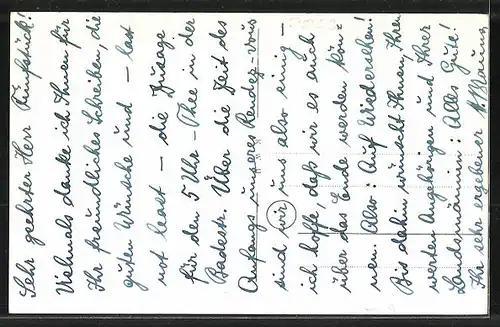 Sehr geehrter Herr Fünfstück!
Vielmals danke ich Ihnen für
Ihr freundliches Schreiben, die
guten Wünsche und – last
not least – die Zusage
für den 5 Uhr-Thee in der
Badestr. Über die Zeit des
Anfangs unseres Rendez-vous
sind wir uns also einig –
ich hoffe, daß wir es auch
über das Ende werden kön-
nen. Also: Auf Wiedersehen!
Bis dahin wünscht Ihnen, Ihren
werden Angehörigen und Ihrer
Landsmännin: Alles Gute!
Ihr sehr ergebener